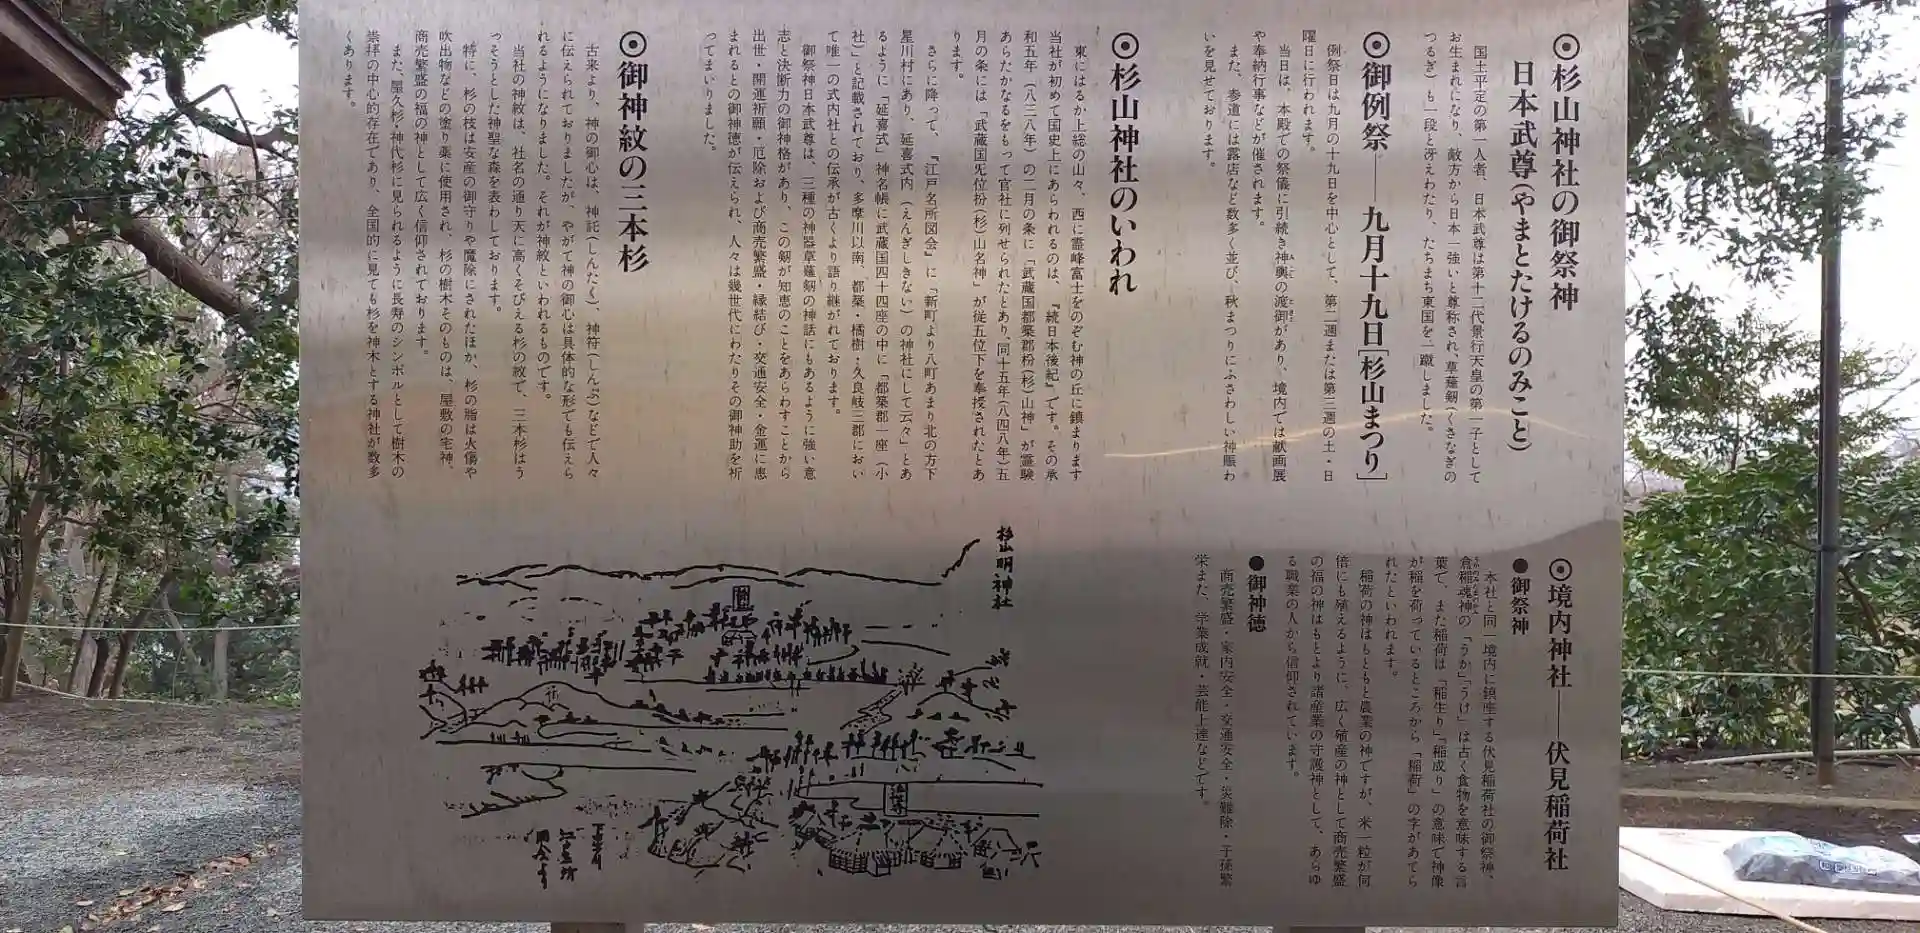 ◉杉山神社の御祭神
日本武尊(やまとたけるのみこと)
国土平定の第一人者、日本武尊は第十二代景行天皇の第一子として
お生まれになり、敵方から日本一強いと尊称され、草薙剱(くさなぎの
つるぎ)も一段と冴えわたり、たちまち東国を一蹴しました。
◉御例祭――九月十九日[杉山まつり]
例祭日は九月の十九日を中心として、第二週または第三週の土・日
曜日に行われます。
当日は、本殿での祭儀に引続き神輿の渡御があり、境内では献画展
や奉納行事などが催されます。
また、参道には露店など数多く並び、秋まつりにふさわしい神賑わ
いを見せております。
◉杉山神社のいわれ
東にはるか上総の山々、西に霊峰富士をのぞむ神の丘に鎮まります
当社が初めて国史上にあらわれるのは、『続日本後紀』です。その承
和五年(八三八年)の二月の条に「武蔵国都築郡枌(杉)山神」が霊験
あらたかなるをもって官社に列せられたとあり、同十五年(八四八年)五
月の条には「武蔵国旡位枌(杉)山名神」が従五位下を奉授されたとあ
ります。
さらに降って、『江戸名所図会』に「新町より八町あまり北の方下
星川村にあり、延喜式内(えんぎしきない)の神社にして云々」とあ
るように「延喜式」神名帳に武蔵国四十四座の中に「都築郡一座(小
社)」と記載されており、多摩川以南、都築・橘樹・久良岐三郡におい
て唯一の式内社との伝承が古くより語り継がれております。
御祭神日本武尊は、三種の神器草薙剱の神話にもあるように強い意
志と決断力の御神格があり、この剱が知恵のことをあらわすことから
出世・開運祈願・厄除および商売繁盛・縁結び・交通安全・金運に恵
まれるとの御神徳が伝えられ、人々は幾世代にわたりその御神助を祈
ってまいりました。
◉御神紋の三本杉
古来より、神の御心は、神託(しんたく)、神符(しんぷ)などで人々
に伝えられておりましたが、やがて神の御心は具体的な形でも伝えら
れるようになりました。それが神紋といわれるものです。
当社の神紋は、社名の通り天に高くそびえる杉の紋で、三本杉はう
っそうとした神聖な森を表わしております。
特に、杉の枝は安産の御守りや魔除にされたほか、杉の脂は火傷や
吹出物などの塗り薬に使用され、杉の樹木そのものは、屋敷の宅神、
商売繁盛の福の神として広く信仰されております。
また、屋久杉・神代杉に見られるように長寿のシンボルとして樹木の
崇拝の中心的存在であり、全国的に見ても杉を神木とする神社が数多
くあります。
◉境内神社――伏見稲荷社
●御祭神
本社と同一境内に鎮座する伏見稲荷社の御祭神、
倉稲魂神の「うか」「うけ」は古く食物を意味する言
葉で、また稲荷は「稲生り」「稲成り」の意味で神像
が稲を荷っているところから「稲荷」の字があてら
れたといわれます。
稲荷の神はもともと農業の神ですが、米一粒が何
倍にも殖えるように、広く殖産の神として商売繁盛
の福の神はもとより諸産業の守護神として、あらゆ
る職業の人から信仰されています。
●御神徳
商売繁盛・家内安全・交通安全・災難除・子孫繁
栄また、学業成就・芸能上達などです。
杉山明神社